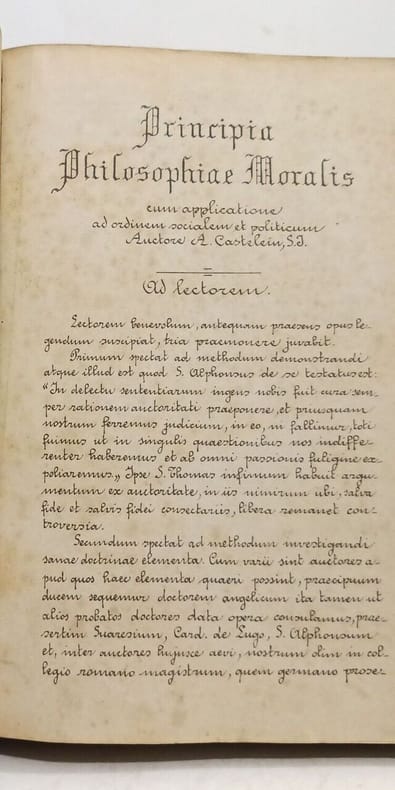 Principia
Philosophiae Moralis
cum applicatione
ad ordinem socialem et politicum
Auctore A. Castelein, S.J.
Ad lectorem.
Lectorem benevolum, antequam praesens opus le-
gendum suscipiat, tria praemonere juvabit.
Primum spectat ad methodum demonstrandi
atque illud est quod S. Alphonsus de se testatus est:
"In delectu sententiarum ingens nobis fuit cura sem-
per rationem auctoritati praeponere, et priusquam
nostrum ferremus judicium, in eo, in fallimur, toti
fuimus ut in singulis quaestionibus nos indiffe-
renter haberemus et ab omni passionis fuligine ex-
poliaremus." Ipse S. Thomas infimum habuit argu-
mentum ex auctoritate, in iis nimirum ubi, salva
fide et salvis fidei consectariis, libera remanet con-
troversia.
Secundum spectat ad methodum investigandi
sanae doctrinae elementa. Cum varii sint auctores a-
pud quos haec elementa quaeri possint, praecipuum
ducem sequemur doctorem angelicum ita tamen ut
alios probatos doctores data opera consulamus, prae-
sertim Suaresium, Card. de Lugo, S. Alphonsum
et, inter auctores hujusce aevi, nostrum olim in col-
legio romano magistrum, quem germano prose-